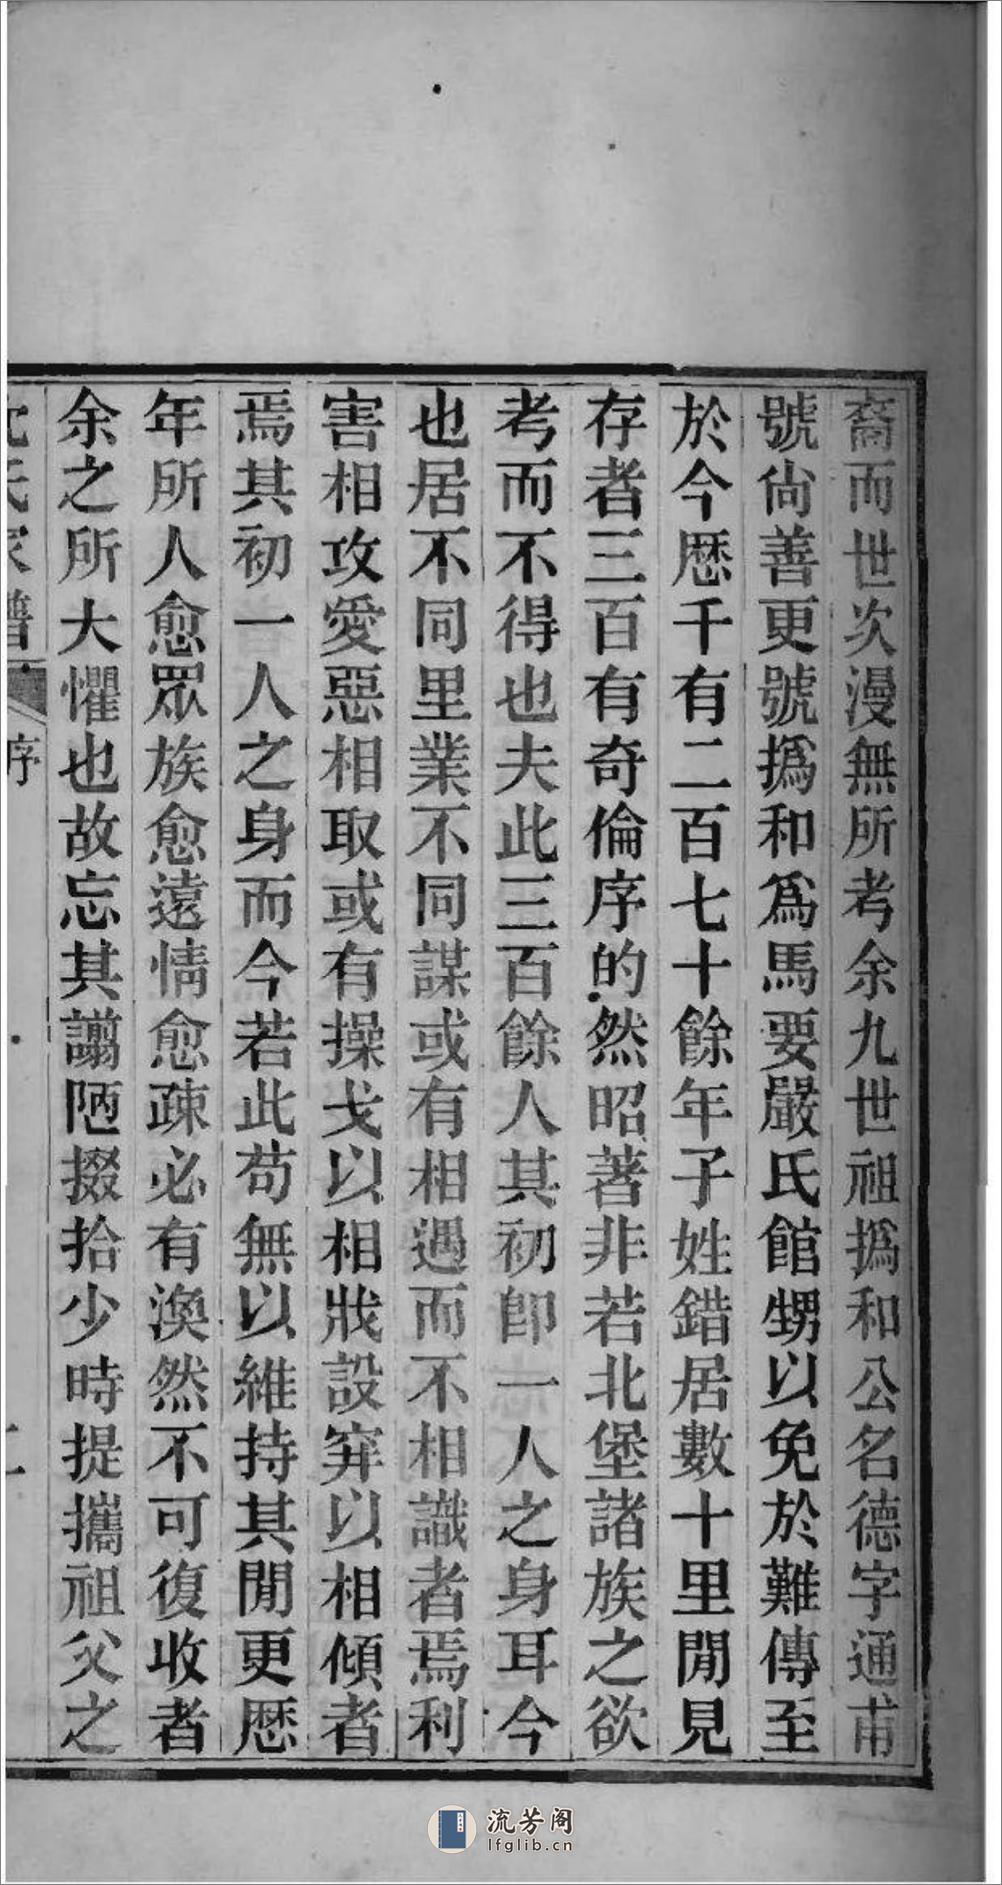 裔而世次漫無所考余九世祖撝和公名德字通甫
號尙善更號撝和爲馬要嚴氏館甥以免於難傳至
於今歴千有二百七十餘年子姓錯居數十里閒見
存者三百有奇倫序的然昭著非若北堡諸族之欲
考而不得也夫此三百餘人其初卽一人之身耳今
也居不同里業不同謀或有相遇而不相識者焉利
害相攻愛惡相取或有操戈以相戕設穽以相傾者
焉其初一人之身而今若此苟無以維持其閒更歴
年所人愈眾族愈遠情愈疎必有渙然不可復收者
余之所大懼也故忘其謭陋掇拾少時提攜祖父之
氏家譜
序
二
流芳阁
lfglib.cn